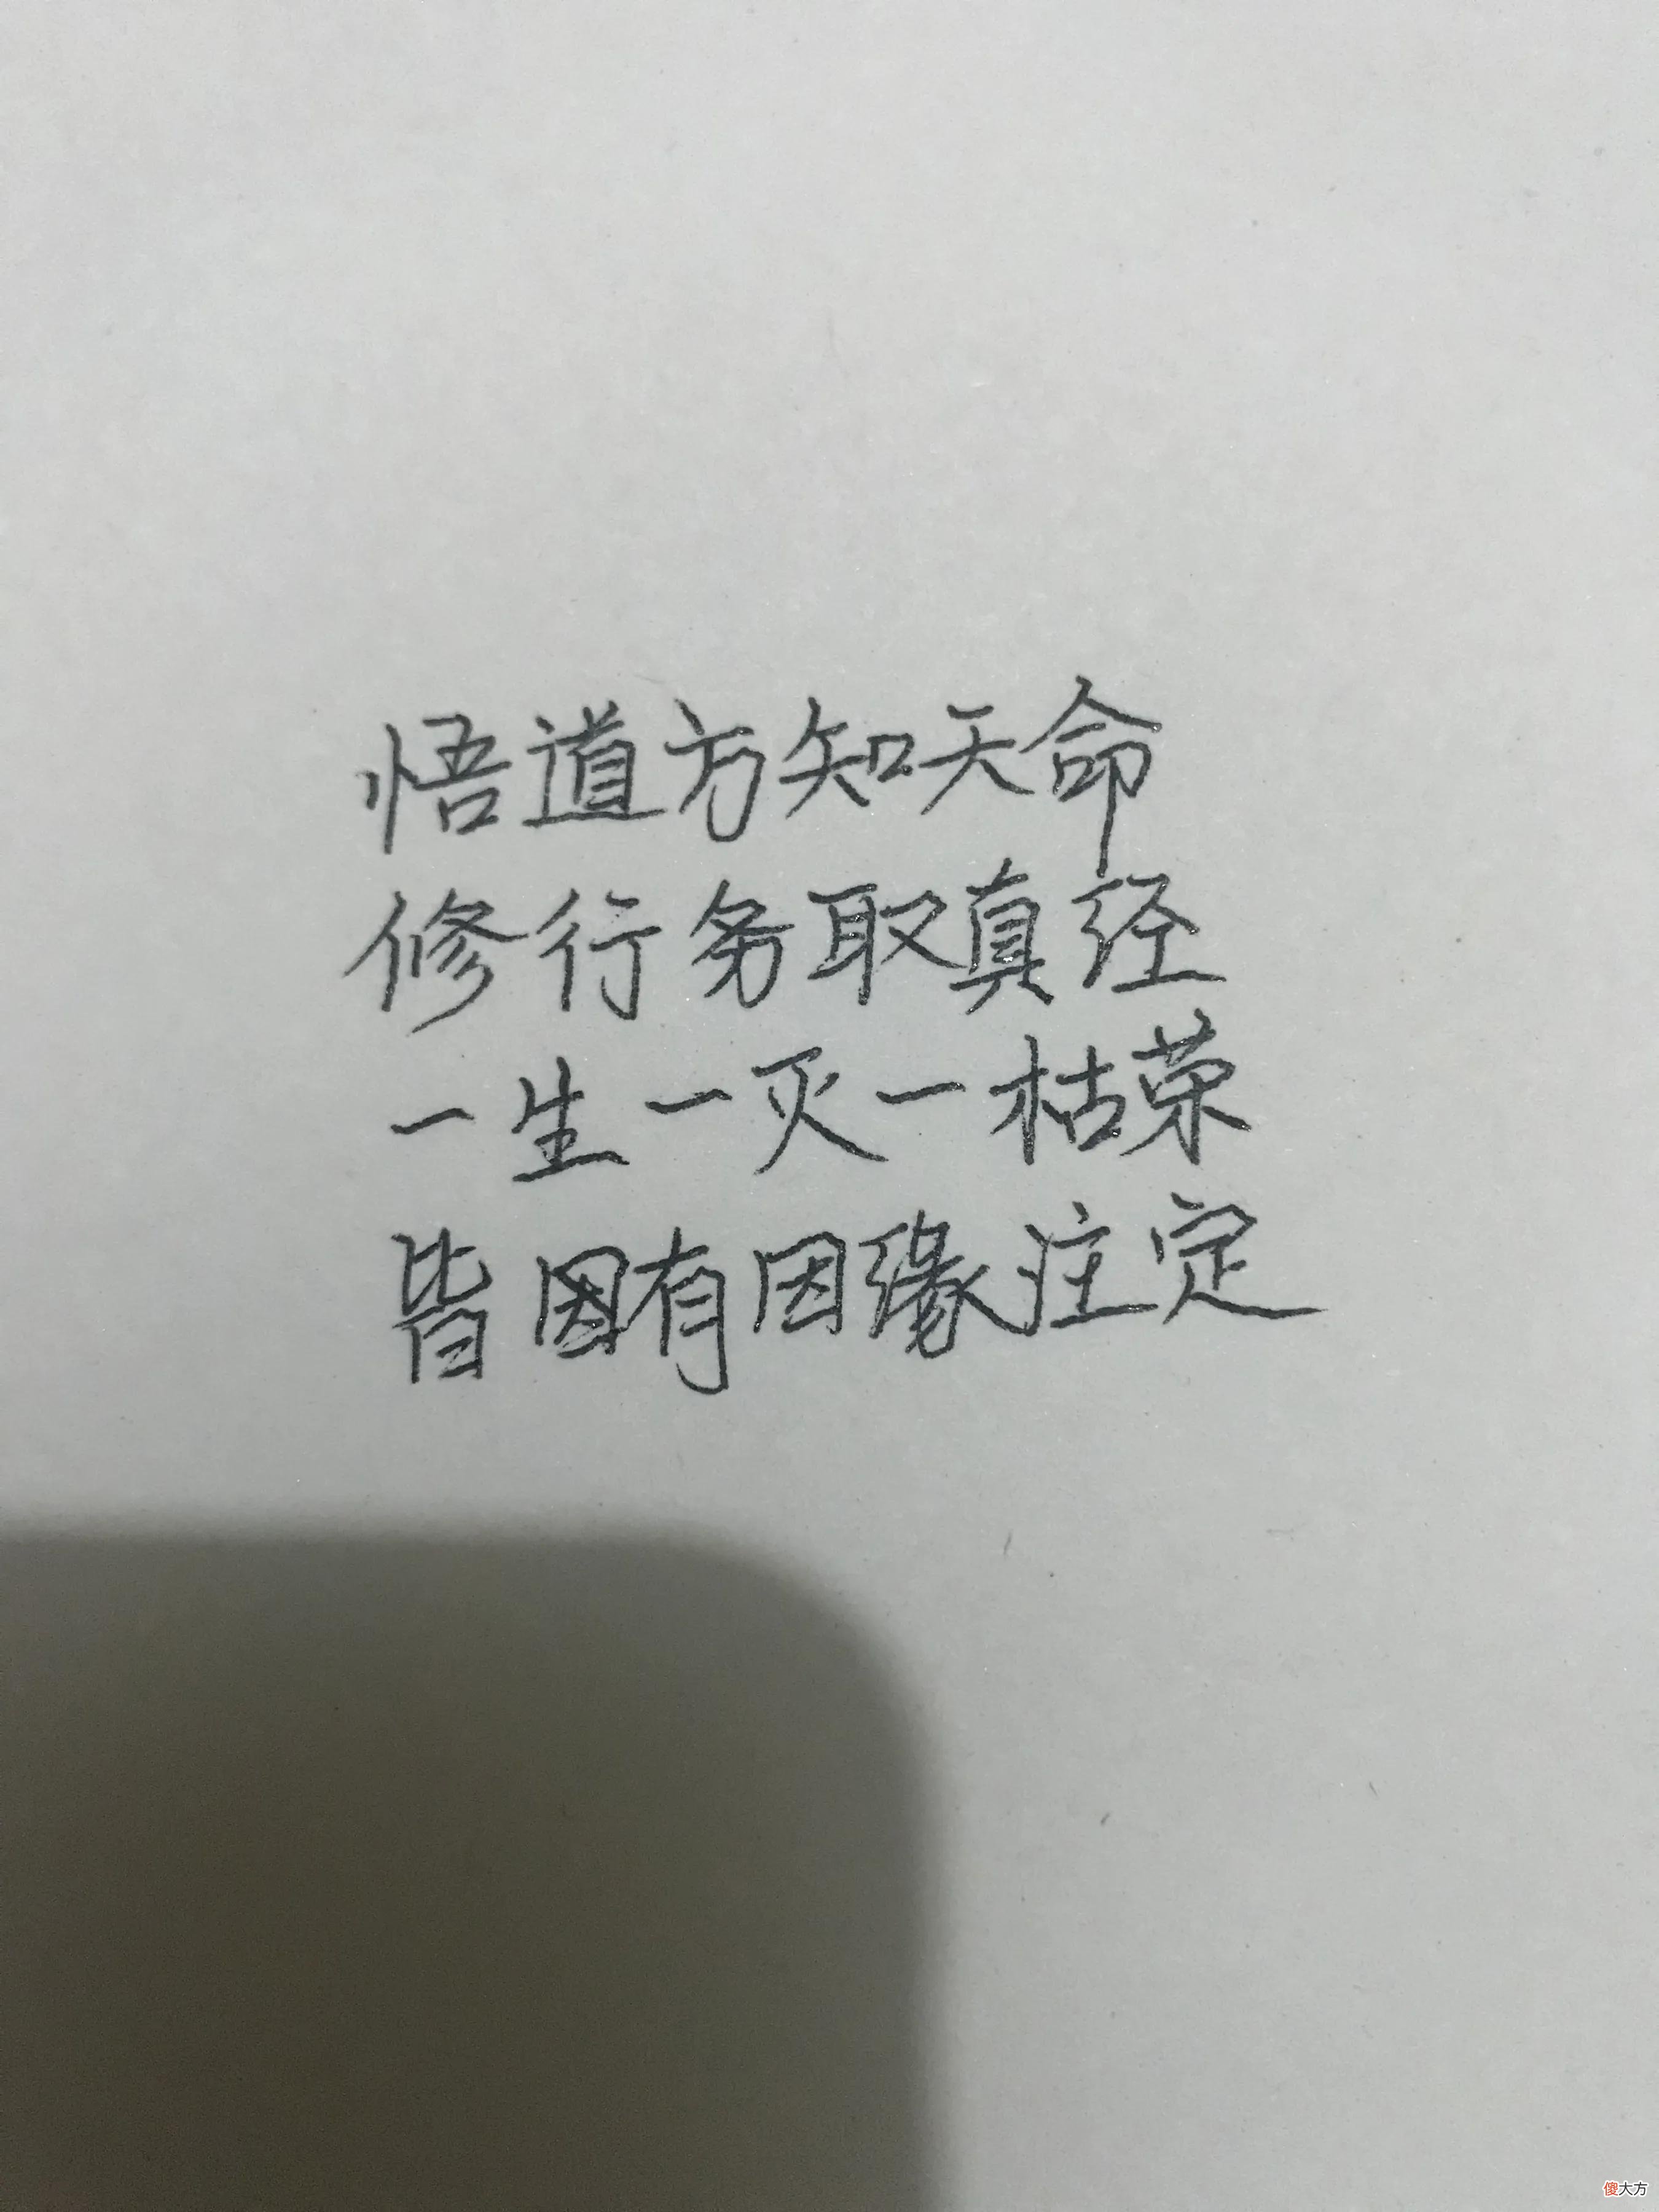 悟道方知天命
修行务取真经
一生一灭一枯荣
皆因有因缘注定
傻大方